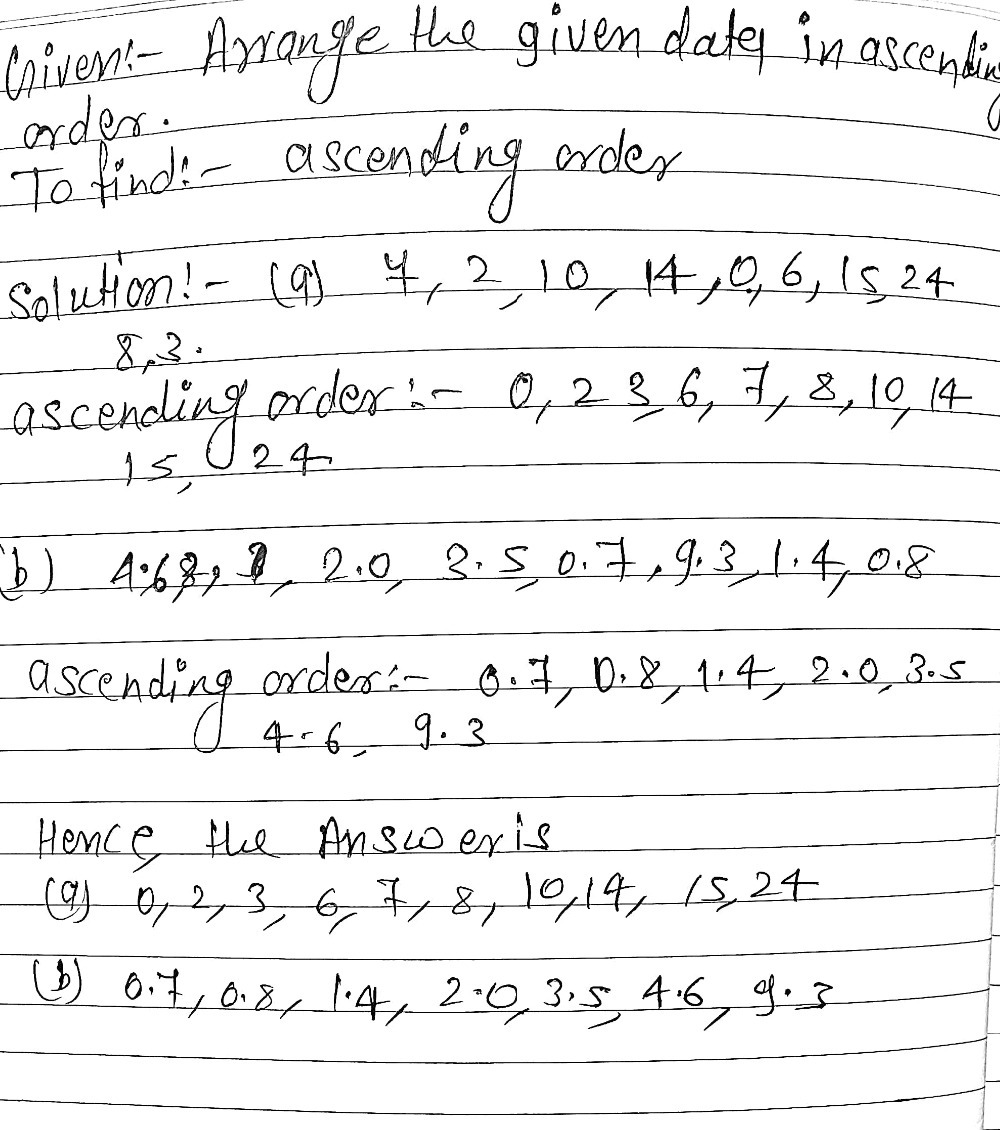 Given:- Arrange the given data in ascending
order.
To find:- ascending order
Solution!- (a) 7, 2, 10, 14, 0, 6, 15, 24
8, 3.
ascending order:- 0, 2 3, 6, 7, 8, 10, 14
15, 24
(b) 4.6, 2.0, 3.5, 0.7, 9.3, 1.4, 0.8
ascending order:- 0.7, 0.8, 1.4, 2.0, 3.5
4.6, 9.3
Hence, the Answer is
(a) 0, 2, 3, 6, 7, 8, 10, 14, 15, 24
(b) 0.7, 0.8, 1.4, 2.0, 3.5, 4.6, 9.3